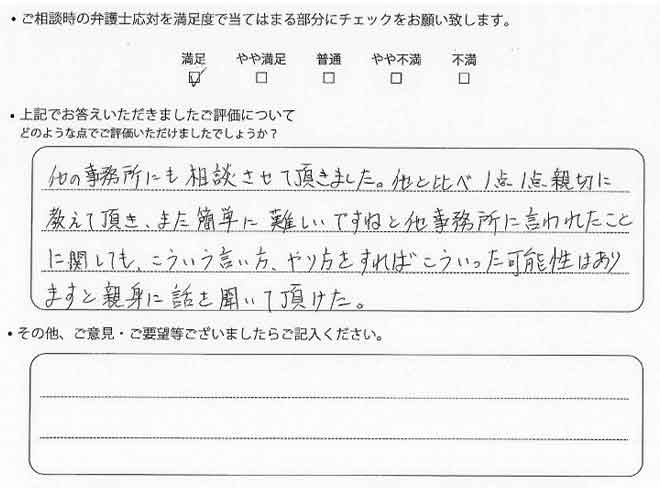 ・ご相談時の弁護士応対を満足度で当てはまる部分にチェックをお願い致します。
満足 やや満足 普通 やや不満 不満
☑ □ □ □ □
・上記でお答えいただきましたご評価について
どのような点でご評価いただけましたでしょうか？
他の事務所にも相談させて頂きました。他と比べ1点1点親切に
教えて頂き、また簡単に難しいですねと他事務所に言われたこと
に関しても、こういう言い方、やり方をすればこういった可能性はあり
ますと親身に話を聞いて頂けた。
・その他、ご意見・ご要望等ございましたらご記入ください。